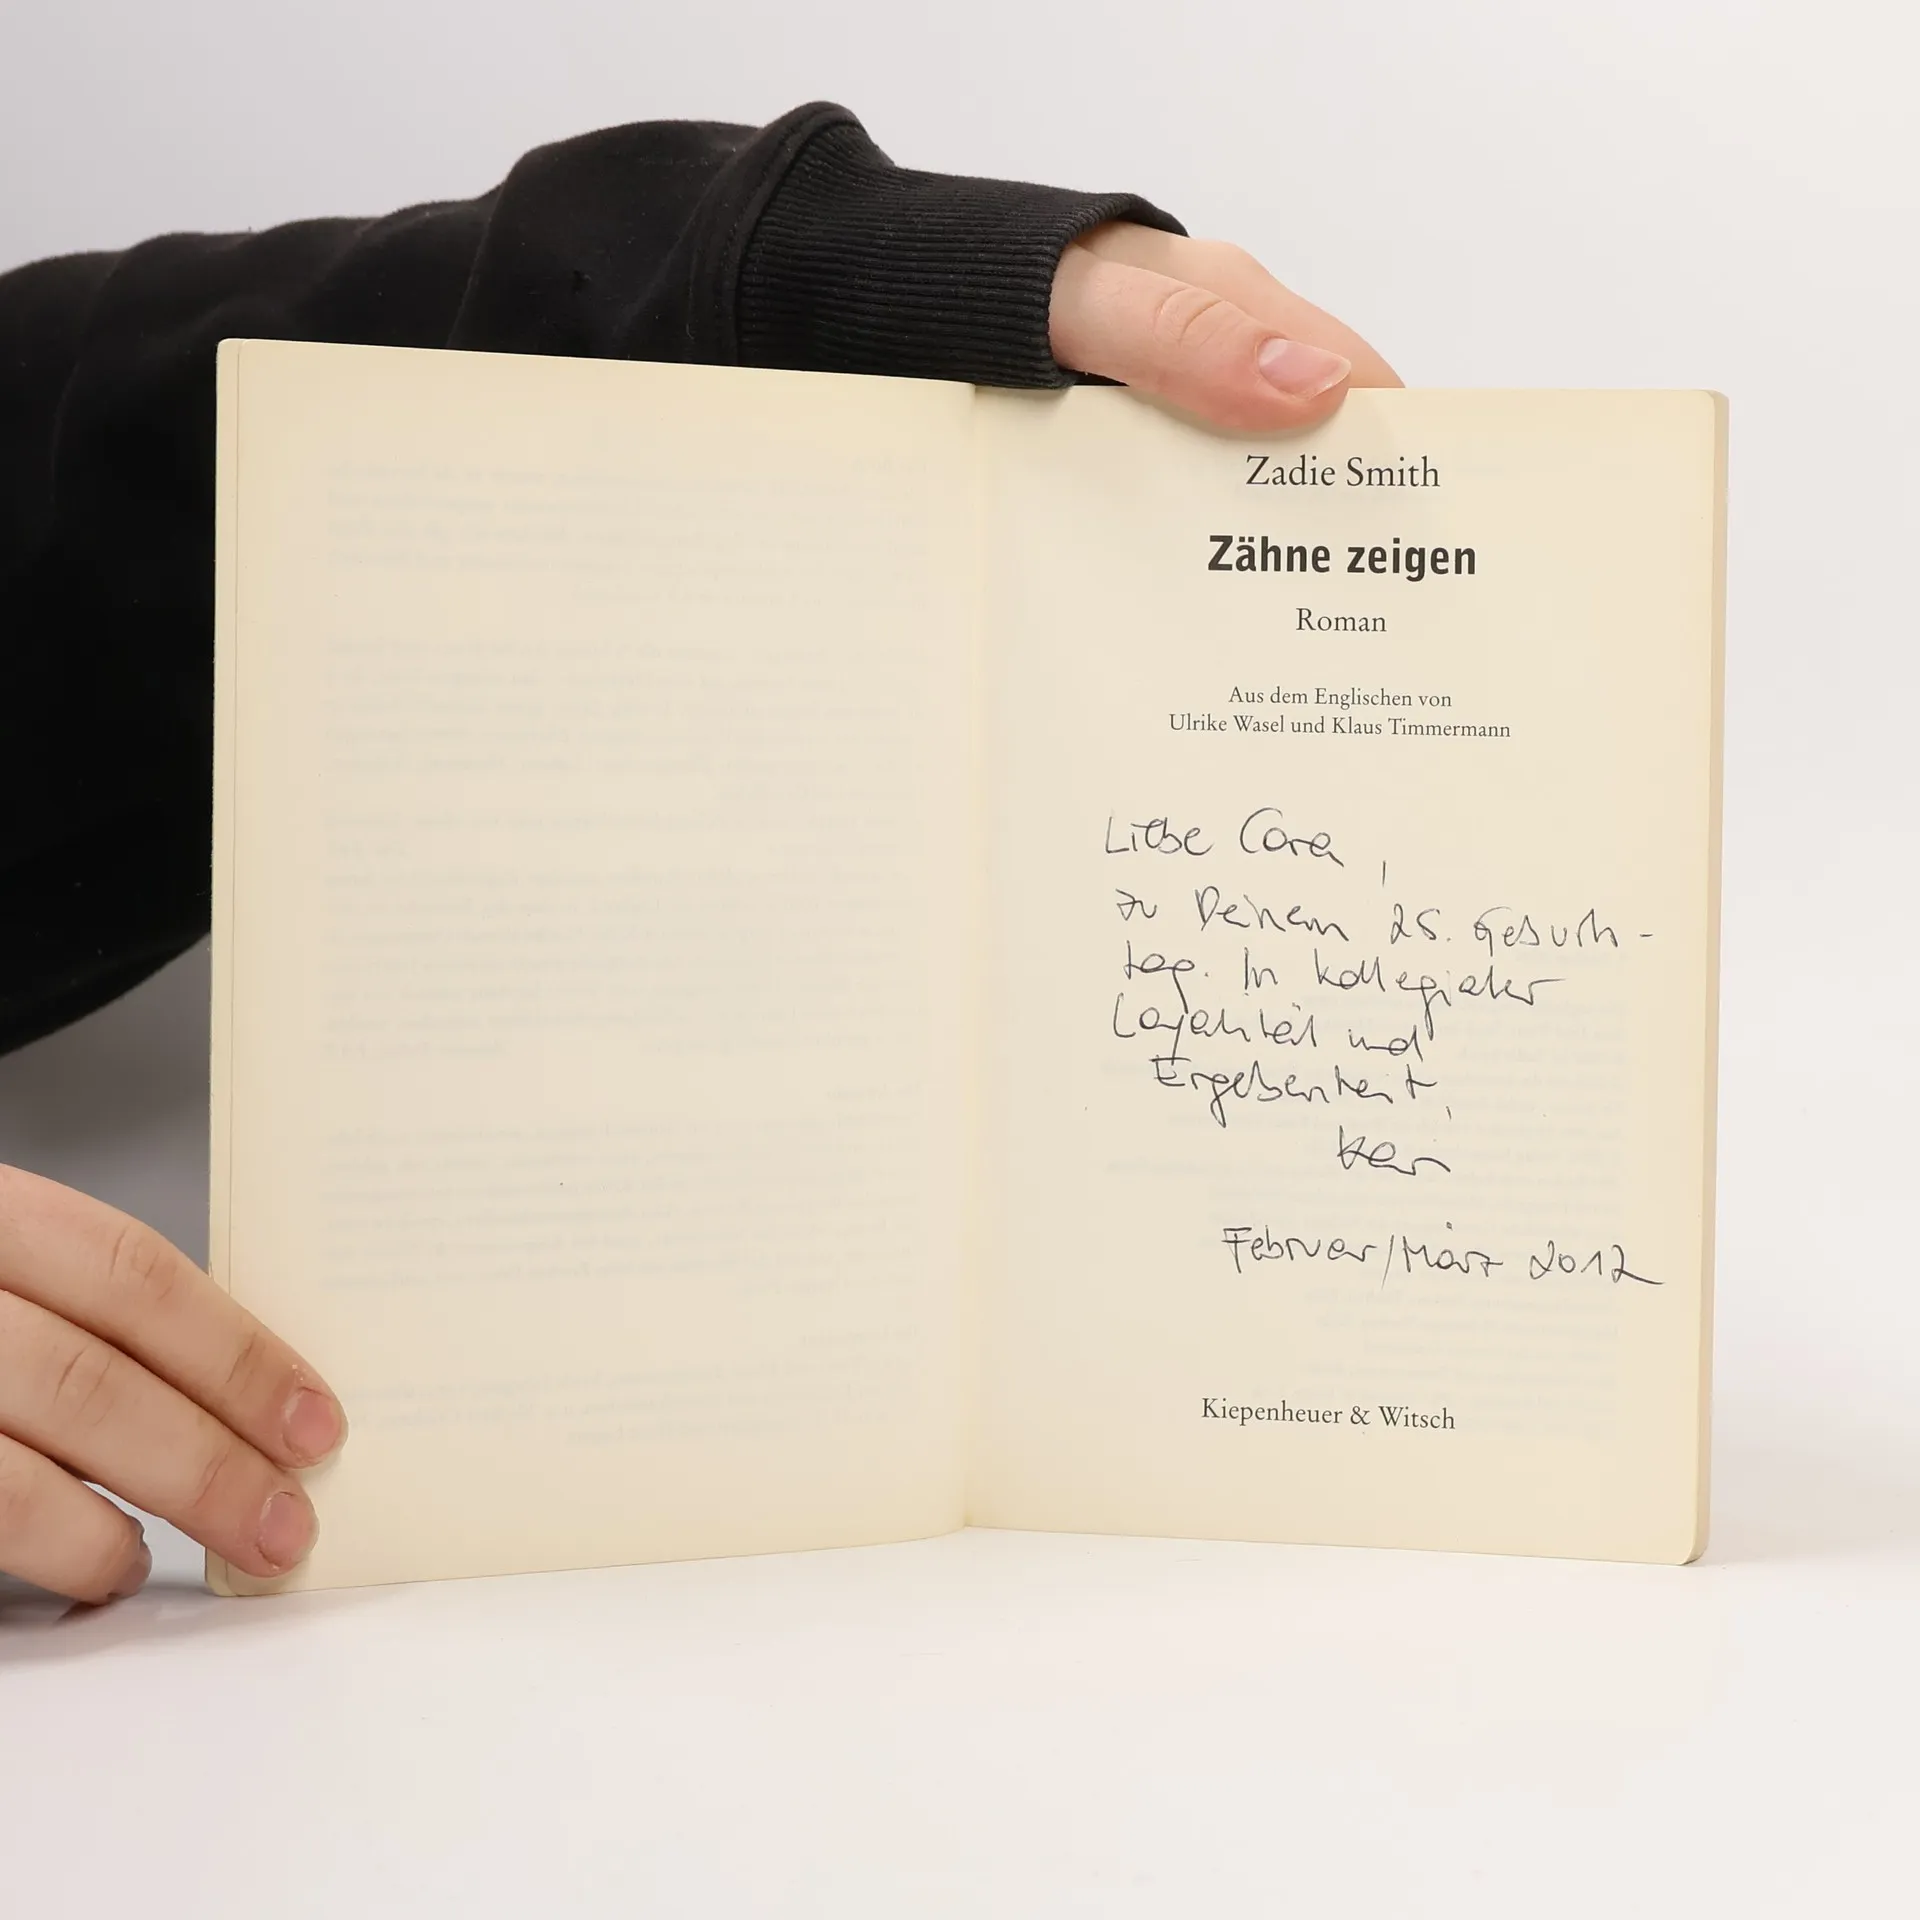 Zadie Smith
Zähne zeigen
Roman
Aus dem Englischen von
Ulrike Wasel und Klaus Timmermann
Liebe Cora,
zu Deinem 25. Geburts-
tag. In kollegialer
Loyalität und
Ergebenheit,
Februar/März 2012
Kiepenheuer & Witsch